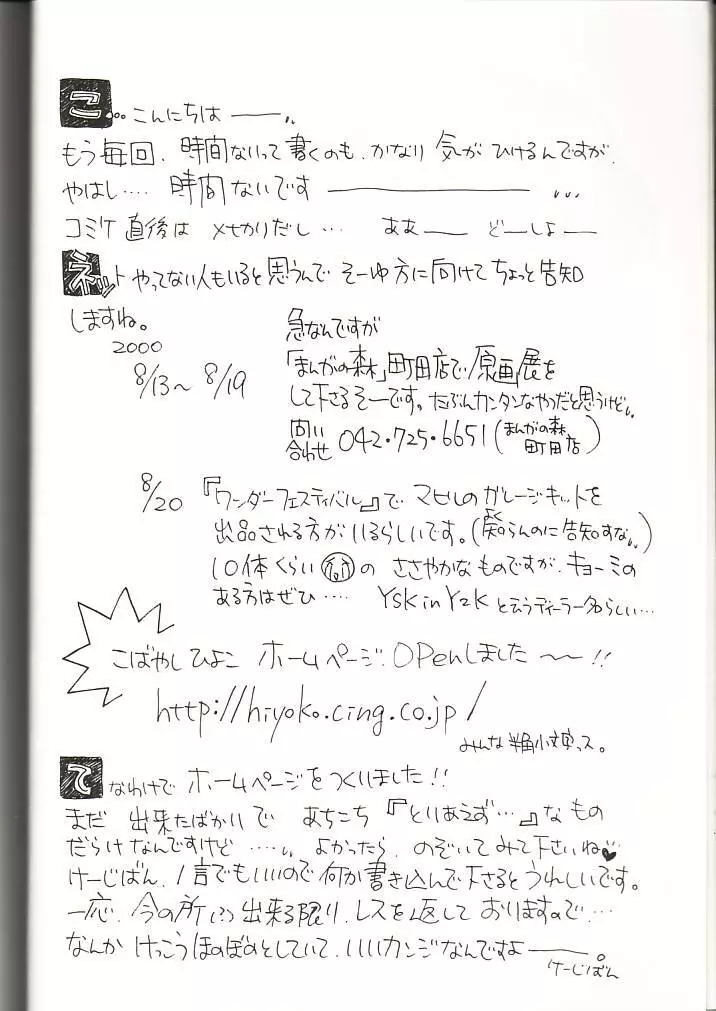 こ…こんにちは――…
もう毎回、時間ないって書くのも、かなり気がひけるんですが、
やはし…‥時間ないです―――――…
コミケ直後は〆切りだし…ああ――どーしよ――
ネットやってない人もいると思うんでそーゆ方に向けてちょっと告知
しますね。
2000
8/13〜8/19
急なんですが
「まんがの森」町田店で「原画」展を
して下さるそーです。たぶんカンタンなやつだと思うけど…
問い合わせ 042・725・6651(まんがの森町田店)
8/20 『ワンダーフェスティバル』でマヒルのガレージキットを
出品される方がいるらしいです。(よく知らんのに告知すな…)
10体くらいの ささやかなものですが、キョーミの
ある方はぜひ…‥ YSK in Y2K と云うディーラー名らしい…
こばやしひよこ ホームページ OPenしました〜〜!!
http://hiyoko.cing.co.jp/
みんな半角小文字っス。
てなわけで ホームページをつくりました!!
まだ 出来たばかりで あちこち『とりあえず…』なもの
だらけなんですけど…‥ よかったら、のぞいてみて下さいね♥
けーじばん、1言でもいいので何か書き込んで下さるとうれしいです。
一応、今の所は出来る限り、レスを返しておりますので…
なんかけっこうほのぼのとしていて、いいカンジなんですよ――。
けーじばん